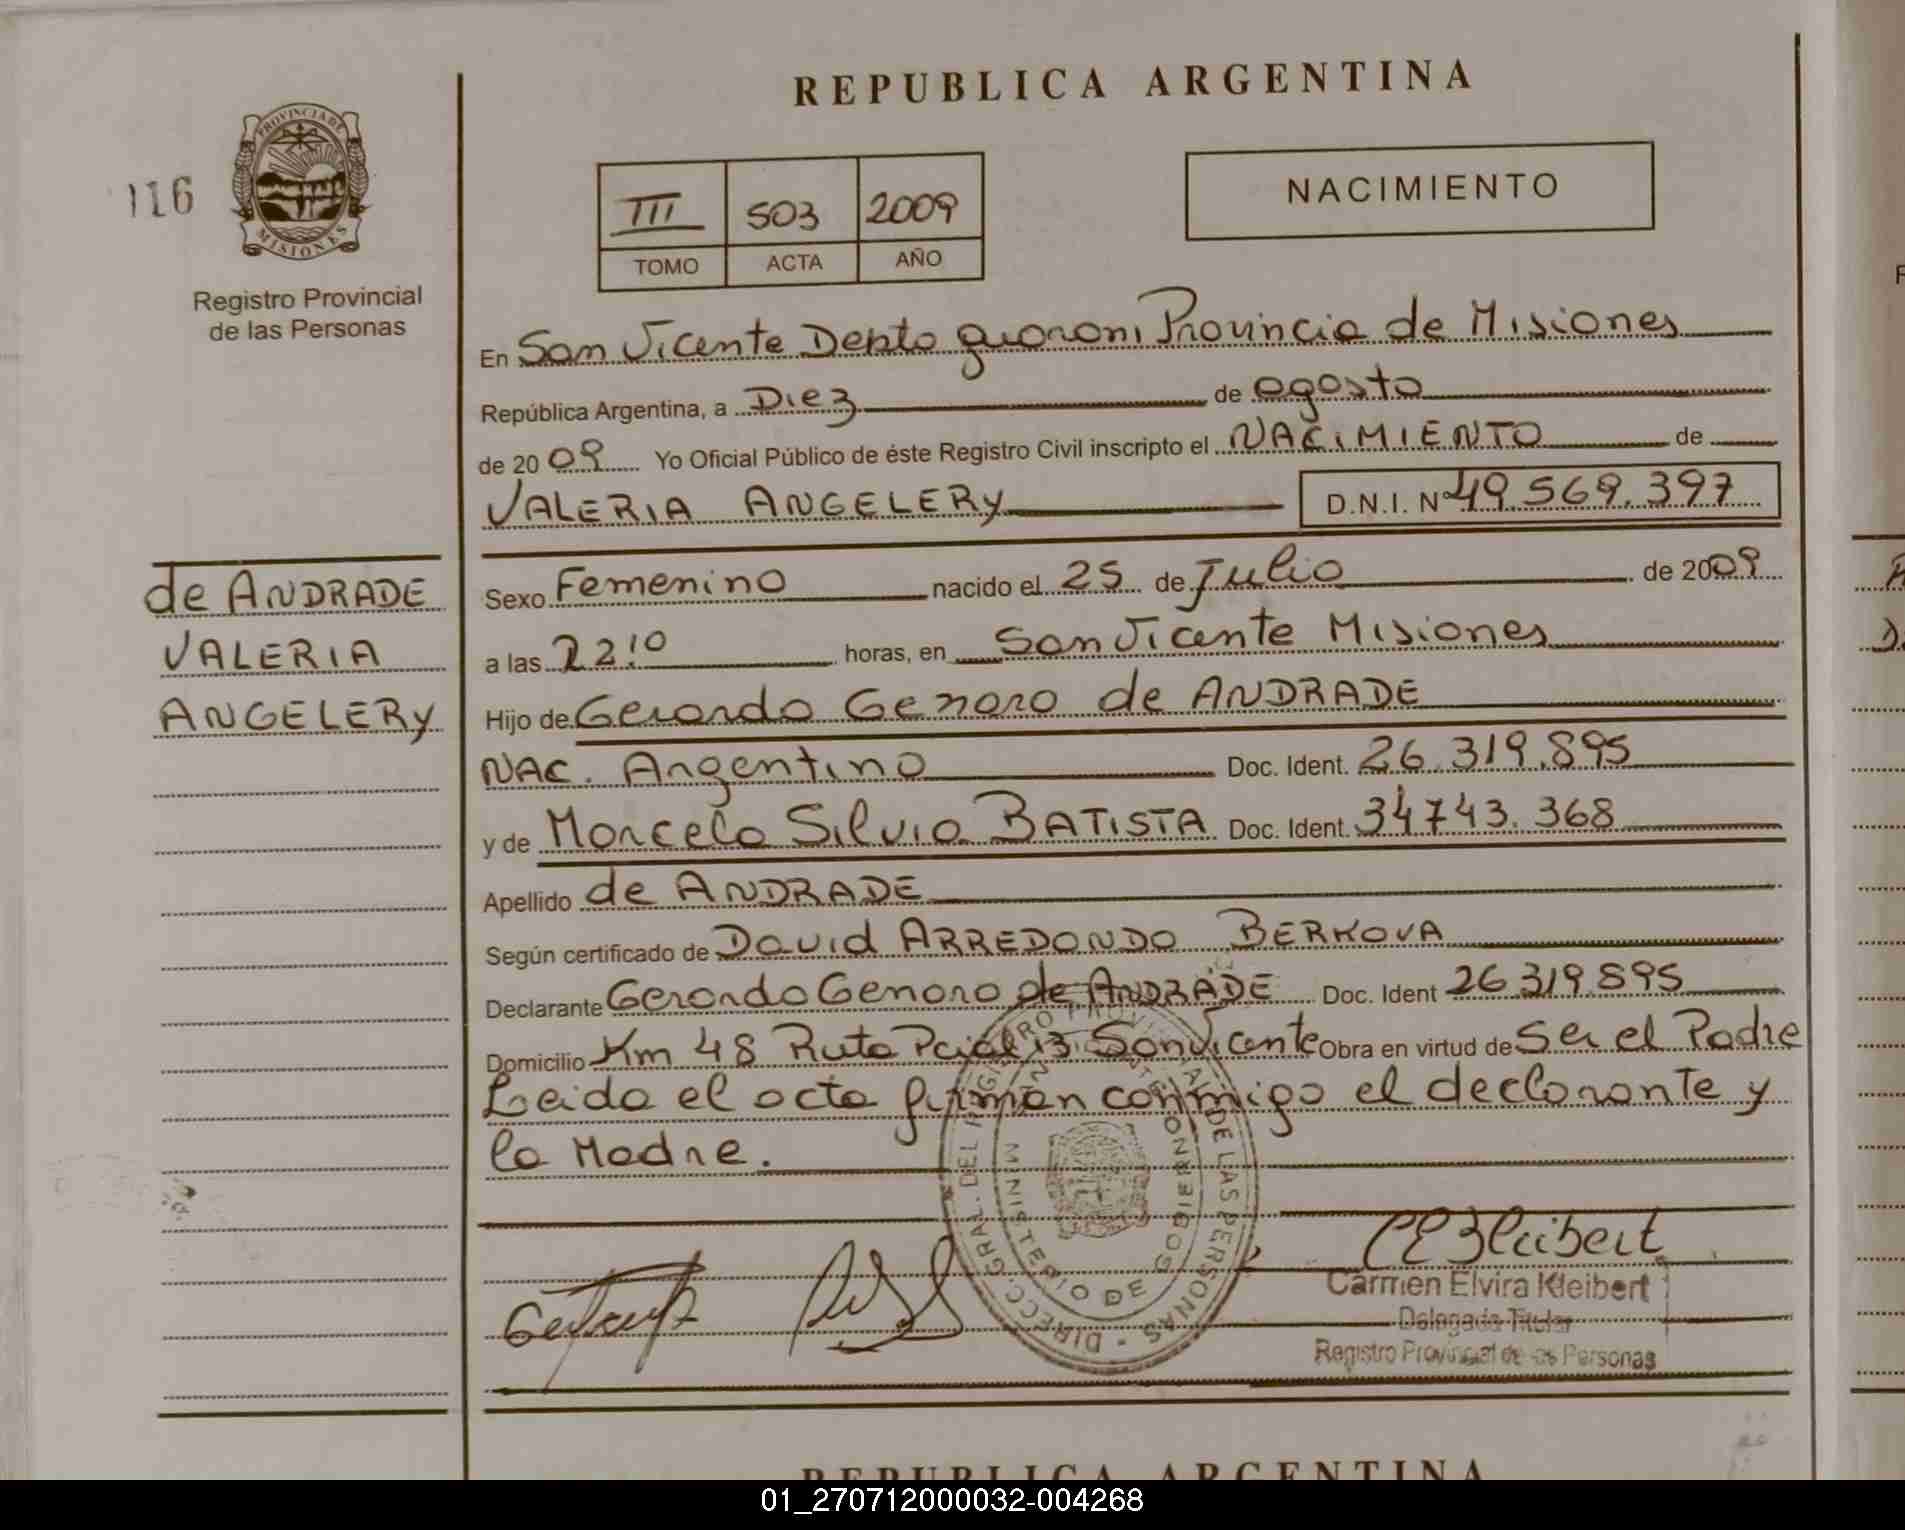 REPUBLICA ARGENTINA
116
PROVINCIA DE
MISIONES
Registro Provincial
de las Personas
III 503 2009
TOMO ACTA AÑO
NACIMIENTO
En San Vicente Depto guaraní Provincia de Misiones
República Argentina, a Diez de agosto
de 2009 Yo Oficial Público de éste Registro Civil inscripto el NACIMIENTO de
VALERIA ANGELERY D.N.I. Nº 49.569.397
de ANDRADE
VALERIA
ANGELERY
Sexo Femenino nacido el 25 de Julio de 2009
a las 22:10 horas, en San Vicente Misiones
Hijo de Gerardo Genaro de ANDRADE
NAC. Argentino Doc. Ident. 26.319.895
y de Marcela Silvia BATISTA Doc. Ident. 34743.368
Apellido de ANDRADE
Según certificado de David ARREDONDO BERKOVA
Declarante Gerardo Genaro de ANDRADE Doc. Ident 26319.895
Domicilio Km 48 Ruta Pcial 13 San Vicente Obra en virtud de Ser el Padre
Leida el acta firman conmigo el declarante y
la Madre.
DIRECC. GRAL. DEL REGISTRO PROVINCIAL DE LAS PERSONAS
MINISTERIO DE GOBIERNO
Carmen Elvira Kleibert
Delegada Titular
Registro Provincial de las Personas
REPUBLICA ARGENTINA
01_270712000032-004268